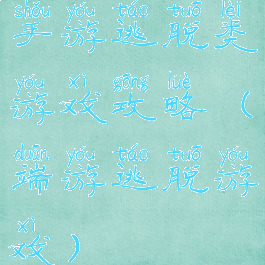 shǒu yóu táo tuō lèi
手游逃脱类
yóu xì gōng lüè
游戏攻略（
duān yóu táo tuō yóu
端游逃脱游
xì
戏）